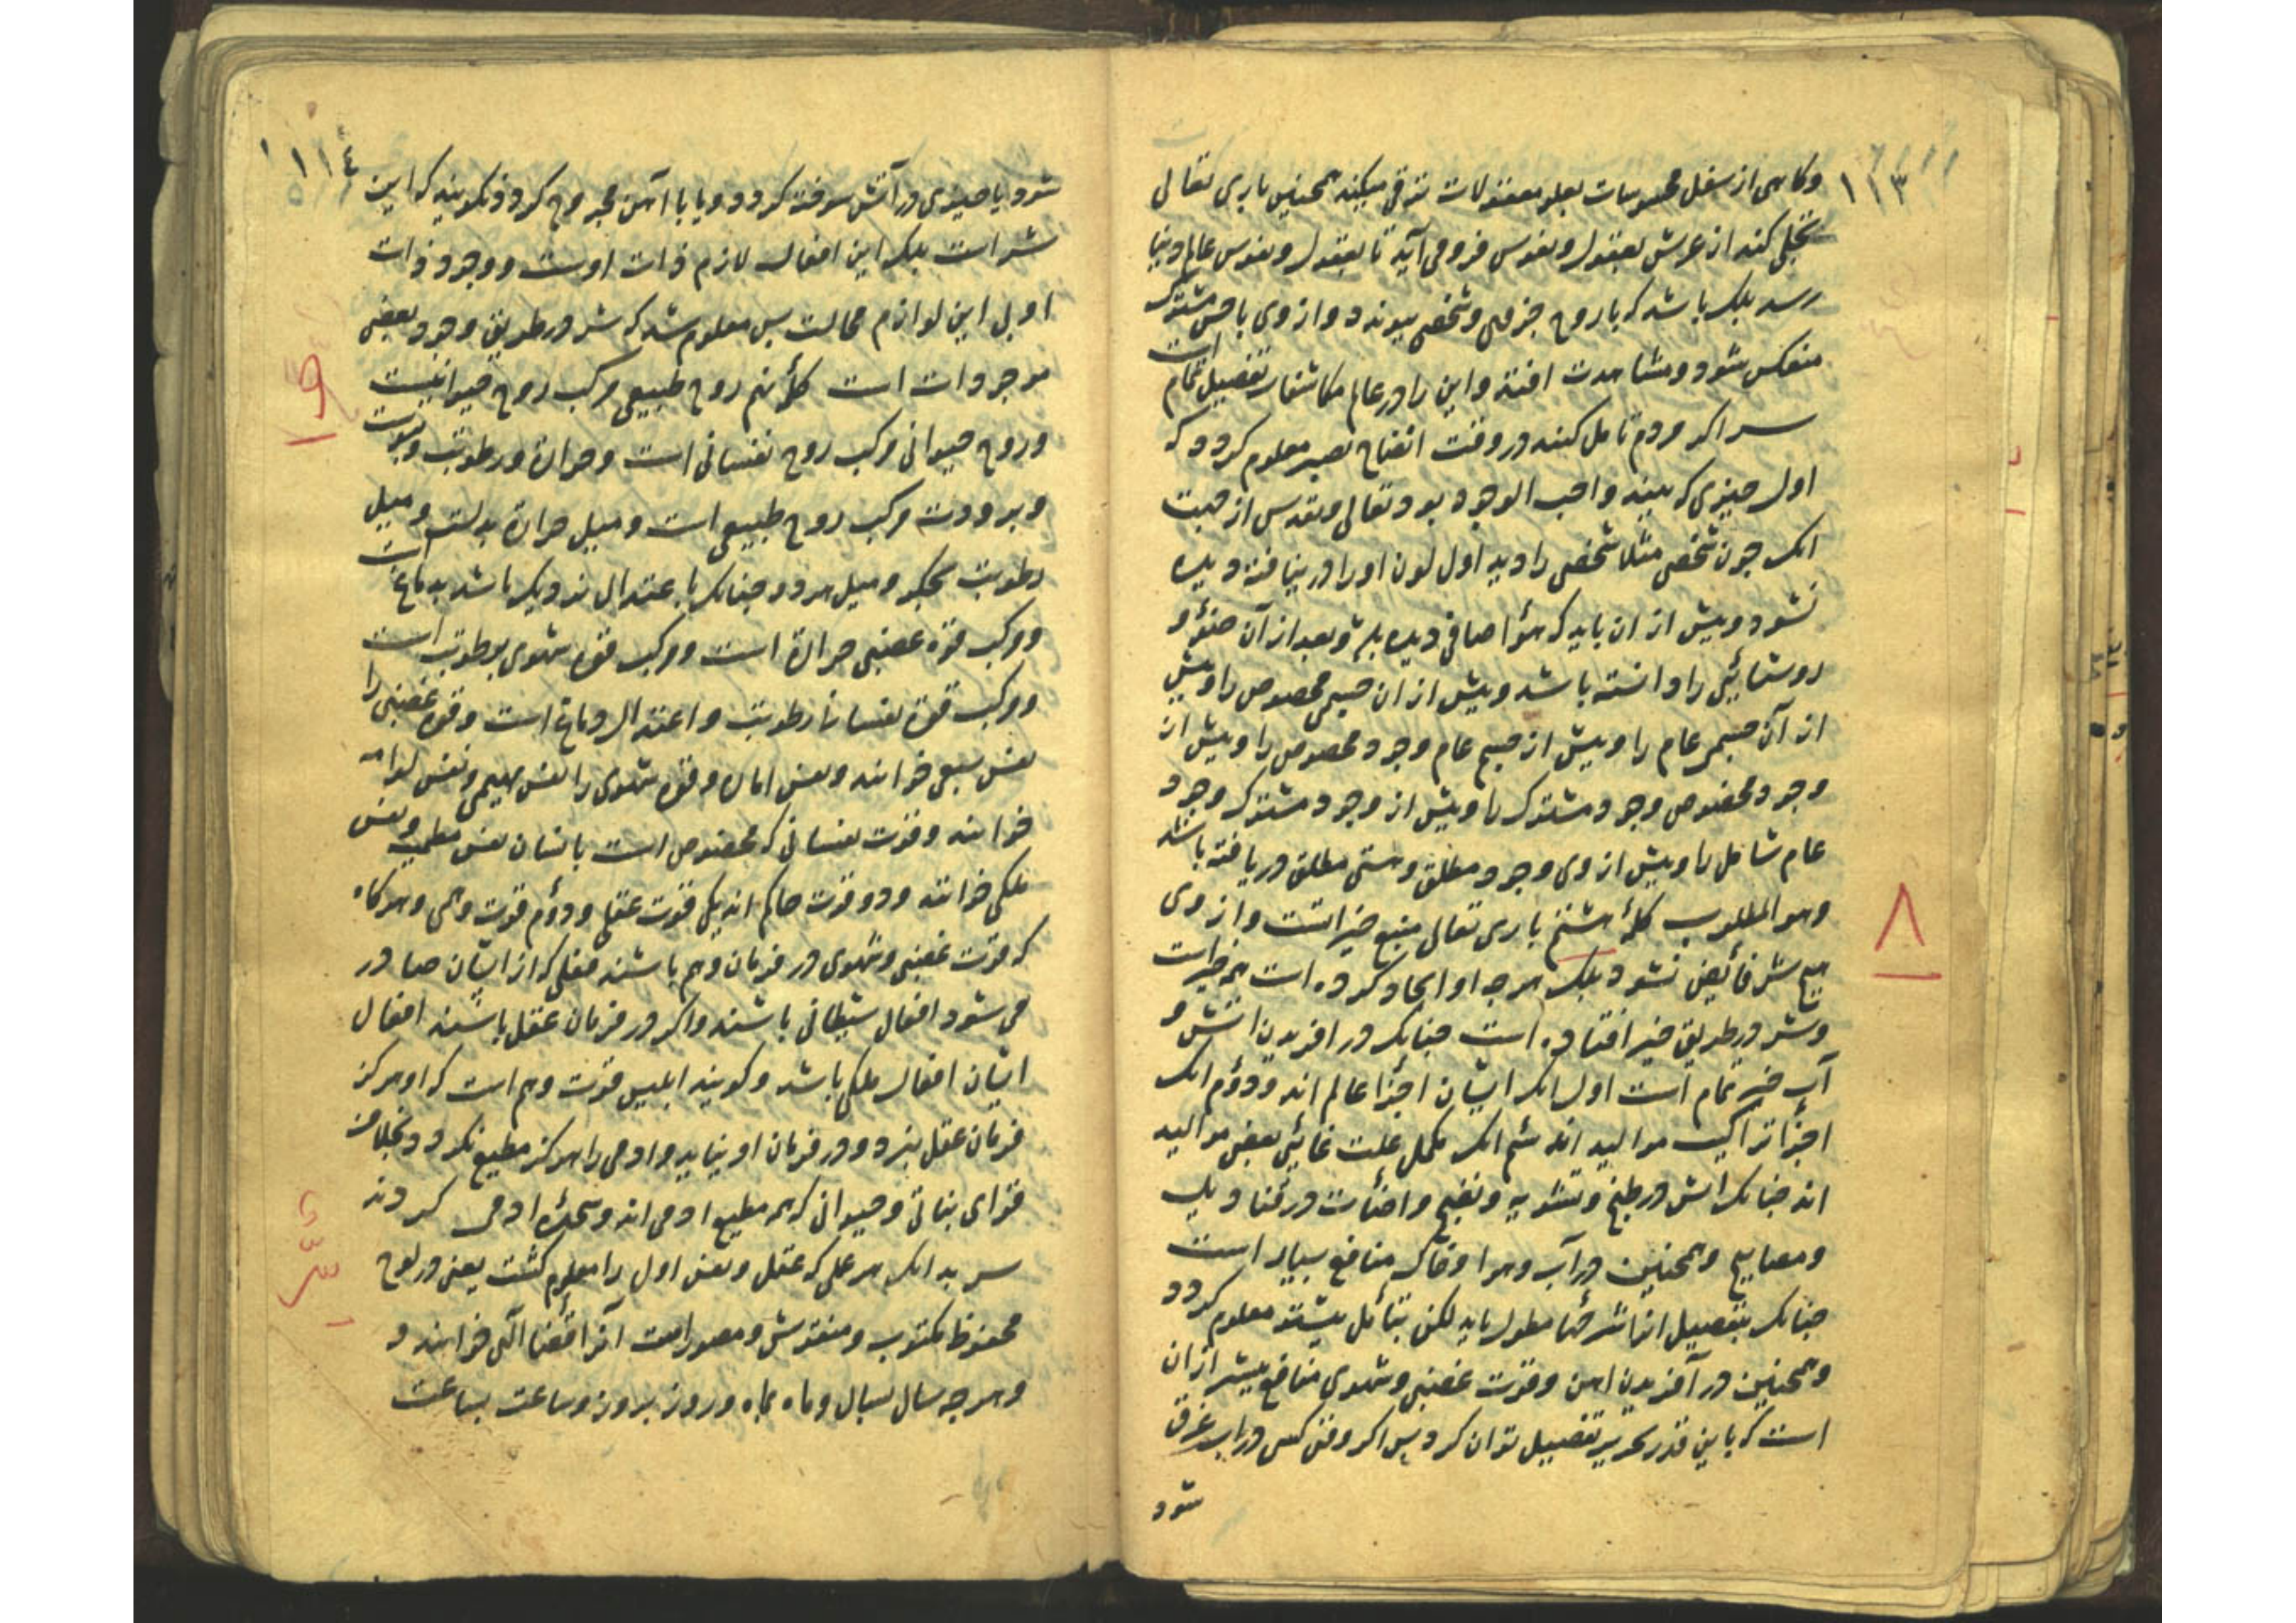 ۱۱۳
وکاهی از سفل محسوسات بعلو معقولات ترقی میکند همچنین باری تعالی
تجلی کند از عرش بعقول و نفوس فرو می آید تا بعقول و نفوس عالم دنیا
رسد بلک باشد که با روح جزوی و شخصی پیوندد و از وی با حس مشترک
منعکس شود و مشاهدت افتد و این را در عالم مکاشفات تفصیل تمام است
سر اکر مردم تامل کنند در وقت انفتاح بصر معلوم کردد که
اول چیزی که بیند واجب الوجود بود تعالی و تقدس از جهت
انک چون شخص مثلا شخصی را دید اول لون او را در نیافته دیده
نشود و پیش از ان باید که هوا صافی دیده باشد و بعد از آن ضوء و
روشنایی را دانسته باشد و پیش از ان جسم مخصوص را و پیش
از آن جسم عام را و پیش از جسم عام وجود مخصوص را و پیش از
وجود مخصوص وجود مشترک را و پیش از وجود مشترک وجود
عام شامل را و پیش از وی وجود مطلق و هستی مطلق دریافته باشد
وهو المطلوب کلمهٔ هشتم باری تعالی منبع خیراتست و از وی
هیچ شر فائض نشود بلک هرچه او ایجاد کرده است همه خیر است
وشر در طریق خیر افتاده است چنانک در افریدن اتش و
آب خیر تمام است اول انک ایشان اجزا عالم اند و دوم انک
اجزا تراکیب موالید اند سیم انک مکمل علت غائی بعض موالید
اند چنانک اتش در طبخ و تشویه و نضج و اضائت در قنادیل
و مصابیح و همچنین در آب و هوا و خاک منافع بسیار است
چنانک بتفصیل انرا شرحها مطول باید لکن بتأمل بیشتر معلوم کردد
وهمچنین در آفریدن اهن و قوت غضبی و شهوی منافع بیشتر از ان
است که باین قدر تحریر تفصیل توان کرد پس اکر وقتی کسی در اب غرق
شود
۸
۱۱۴
شود یا چیزی در آتش سوخته کردد و یا با آهن مجروح کردد نکویند که این
شر است بلک این افعال لازم ذات اوست و وجود ذات
او بی این لوازم محالست پس معلوم شد که شر در طریق وجود بعضی
موجودات است کلمهٔ نهم روح طبیعی مرکب روح حیوانیست
وروح حیوانی مرکب روح نفسانی است و حرارة و رطوبت و یبوست
و برودت مرکب روح طبیعی است و میل حرارة بدلست و میل
رطوبت بجکر و میل هر دو چنانک باعتدال نزدیک باشد بدماغ است
ومرکب قوة غضبی حرارة است و مرکب قوة شهوی رطوبت است
ومرکب قوة نفسانی رطوبت و اعتدال دماغ است و قوة غضبی را
نفس سبعی خوانند و نفس اماره و قوة شهوی را نفس بهیمی و نفس لوامه
خوانند و قوت نفسانی که مخصوص است بانسان نفس مطمئنه و نفس
ملکی خوانند و دو قوت حاکم اند یکی قوت عقلی و دوم قوت وهمی و هرکاه
که قوت غضبی و شهوی در فرمان وهم باشند فعلی که از ایشان صادر
می شود افعال شیطانی باشند و اکر در فرمان عقل باشند افعال
ایشان افعال ملکی باشد و کویند ابلیس قوت وهم است که او هرکز
فرمان عقل نبرد و در فرمان او نیاید و ادمی را هرکز مطیع نکردد بخلاف
قوای نباتی و حیوانی که همه مطیع ادمی اند و مسخر ادمی کردند
سر بدانک هر علمی که عقل و نفس اول را معلوم کشت یعنی در لوح
محفوظ مکتوب و منقوش و مصور است آنرا قضا الهی خوانند و
وهر چه سال بسال و ماه بماه و روز بروز و ساعت بساعت
۹